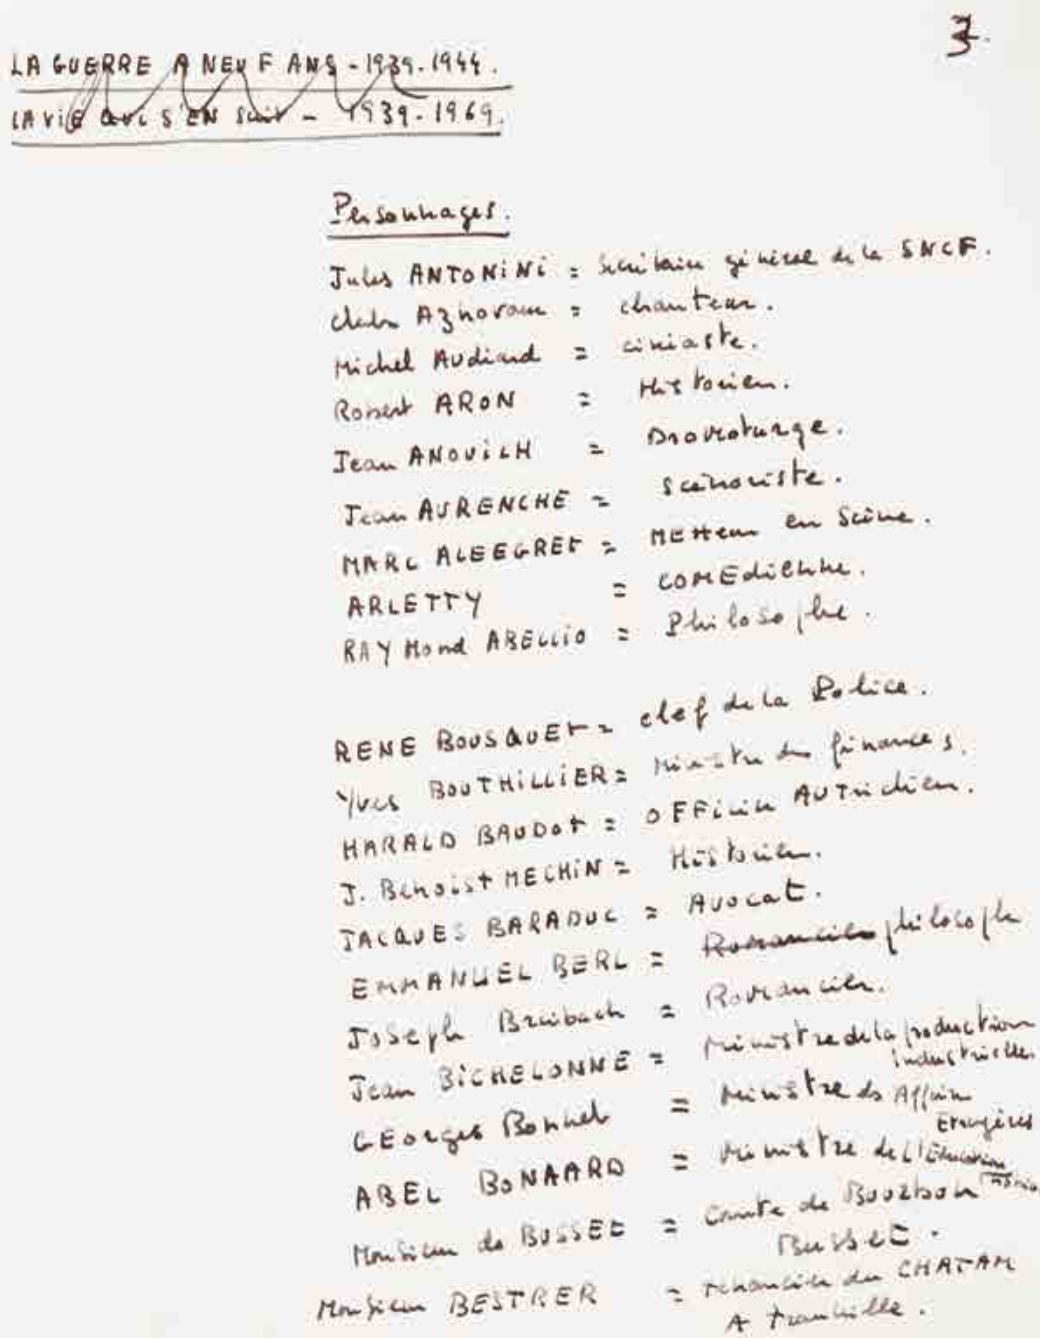 3.
LA GUERRE A NEUF ANS - 1939-1944.
LA VIE QUI S'EN Suit - 1939-1969.
Personnages.
Jules ANTONINI = Secrétaire général de la SNCF.
Charles Aznavour = chanteur.
Michel Audiard = cinéaste.
Robert ARON = Historien.
Jean ANOUILH = Dramaturge.
Jean AURENCHE = Scénariste.
MARC ALEEGRET = METTEUR en Scène.
ARLETTY = COMEDIENNE.
RAYMOND ABELLIO = Philosophe.
RENE BOUSQUET = chef de la Police.
Yves BOUTHILLIER = Ministre des finances.
HARALD BAUDOT = OFFicier AUTrichien.
J. Benoist MECHIN = Historien.
JACQUES BARADUC = Avocat.
EMMANUEL BERL = Romancier philosophe
Joseph Breibach = Romancier.
Jean BICHELONNE = Ministre de la production
industrielle.
GEORGES Bonnet = Ministre des Affaires
Etrangères
ABEL BONAARD = Ministre de L'Education
Monsieur de BUSSET = Comte de Bourbon
Busset.
Monsieur BESTRER = du CHATAM
A